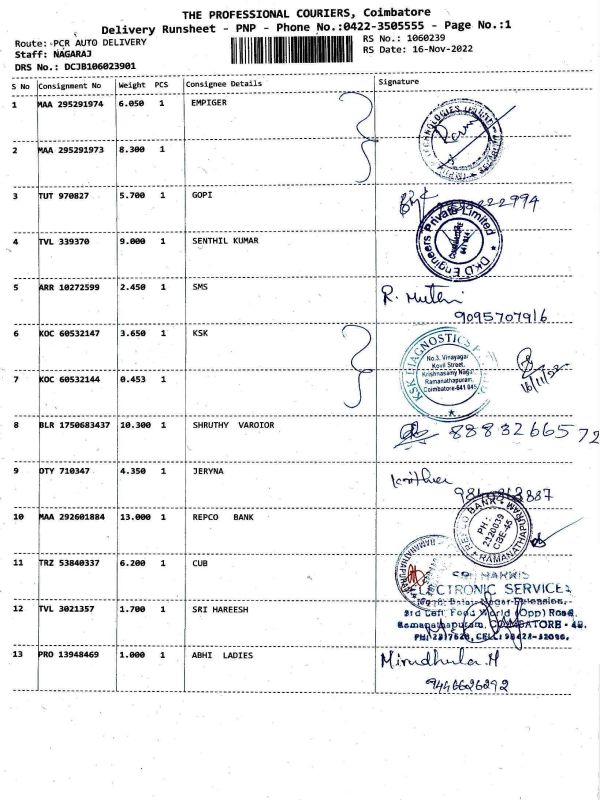 THE PROFESSIONAL COURIERS, Coimbatore
Delivery Runsheet - PNP - Phone No.:0422-3505555 - Page No.:1
Route: PCR AUTO DELIVERY
RS No.: 1060239
Staff: NAGARAJ
RS Date: 16-Nov-2022
DRS No.: DCJB106023901
S No Consignment No Weight PCS Consignee Details Signature
1 MAA 295291974 6.050 1 EMPIGER
2 MAA 295291973 8.300 1
3 TUT 970827 5.700 1 GOPI
4 TVL 339370 9.000 1 SENTHIL KUMAR
DKD Engineers Private Limited
COIMBATORE
5 ARR 10272599 2.450 1 SMS
9095707916
6 KOC 60532147 3.650 1 KSK
KSK DIAGNOSTICS
No.3, Vinayagar
Kovil Street,
Krishnasamy Nagar,
Ramanathapuram,
Coimbatore-641 045
16/11/22
7 KOC 60532144 0.453 1
8 BLR 1750683437 10.300 1 SHRUTHY VAROIOR
8883266572
9 DTY 710347 4.350 1 JERYNA
10 MAA 292601884 13.000 1 REPCO BANK
REPCO BANK
PH:
2320039
CBE-45
RAMANATHAPURAM
11 TRZ 53840337 6.200 1 CUB
ELECTRONIC SERVICES
12 TVL 3021357 1.700 1 SRI HAREESH
3rd Left Food World (Opp) Road,
Ramanathapuram, COIMBATORE - 45.
13 PRO 13948469 1.000 1 ABHI LADIES
Mirudhula.M
9446626292